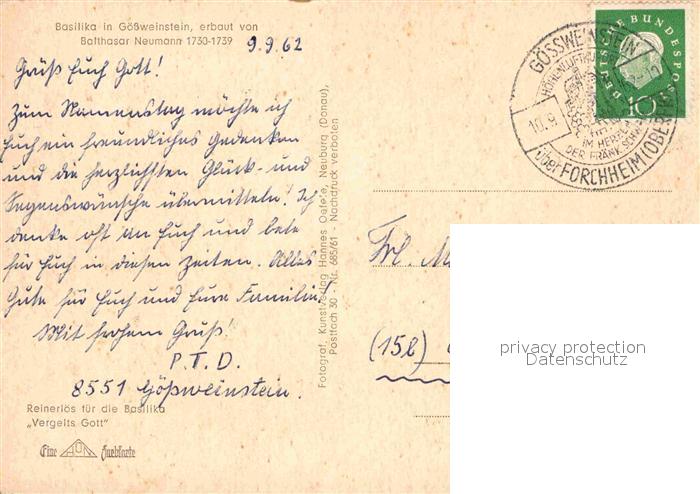 Basilika in Gößweinstein, erbaut von
Balthasar Neumann 1730-1739
9.9.62
Grüß Euch Gott!
Zum Namenstag möchte ich
Euch ein freundliches Gedenken
und die herzlichsten Glück- und
Segenswünsche übermitteln! Ich
denke oft an Euch und bete
für Euch in diesen Zeiten. Alles
Gute für Euch und Eure Familie
Mit frohem Gruß!
P.T.D.
8551 Gößweinstein.
Reinerlös für die Basilika
„Vergelts Gott"
Eine Farbkarte
Fotograf. Kunstverlag Hannes Oefele, Neuburg (Donau),
Postfach 30 - Nr. 685/61 - Nachdruck verboten
DEUTSCHE BUNDESPOST
10
GÖSSWEINSTEIN
10.9
IM HERZEN
DER FRÄNK. SCHWEIZ
über FORCHHEIM (OBERFR)
Frl. M
(15b)
privacy protection
Datenschutz